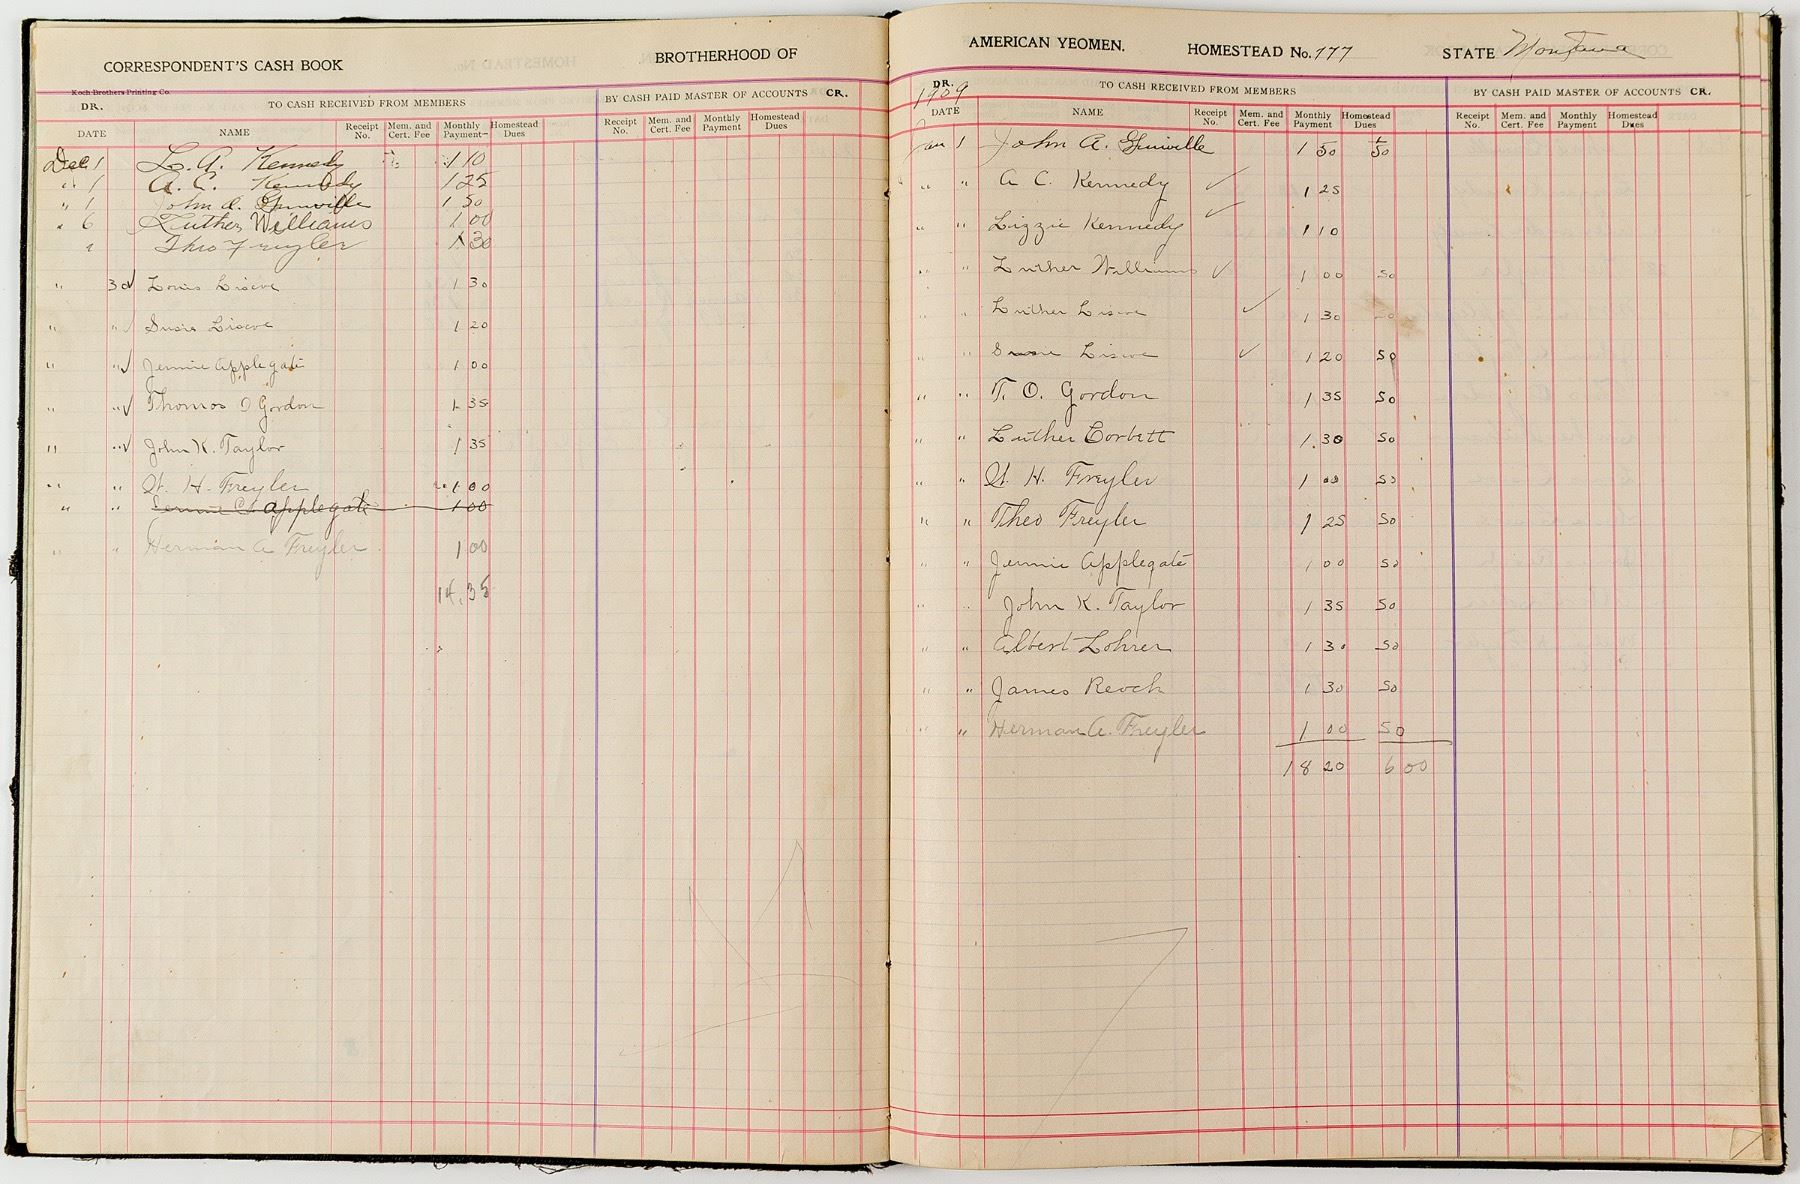 CORRESPONDENT'S CASH BOOK BROTHERHOOD OF
Koch Brothers Printing Co.
DR. TO CASH RECEIVED FROM MEMBERS BY CASH PAID MASTER OF ACCOUNTS CR.
DATE NAME Receipt No. Mem. and Cert. Fee Monthly Payment Homestead Dues Receipt No. Mem. and Cert. Fee Monthly Payment Homestead Dues
Dec 1 L. A. Kennedy 1 10
" 1 A. C. Kennedy 1 25
" 1 John A. 1 50
" 6 Luther Williams 1 00
" Theo Freyler 1 30
" 30 Louis Liscve 1 30
" " Susie Liscve 1 20
" " Jennie Applegate 1 00
" " Thomas O Gordon 1 35
" " John K. Taylor 1 35
" " H. Freyler 1 00
" " Jennie C. Applegate 1 00
" " Herman A Freyler 1 00
14.35
AMERICAN YEOMEN. HOMESTEAD No. 777 STATE Montana
DR. TO CASH RECEIVED FROM MEMBERS BY CASH PAID MASTER OF ACCOUNTS CR.
1909
DATE NAME Receipt No. Mem. and Cert. Fee Monthly Payment Homestead Dues Receipt No. Mem. and Cert. Fee Monthly Payment Homestead Dues
Jan 1 John A. 1 50 50
" " A C. Kennedy ✓ 1 25
" " Lizzie Kennedy ✓ 1 10
" " Luther Williams ✓ 1 00 50
" " Luther Liscve ✓ 1 30 50
" " Susie Liscve ✓ 1 20 50
" " T. O. Gordon 1 35 50
" " Luther Corbett 1.30 50
" " H. Freyler 1 00 50
" " Theo Freyler 1 25 50
" " Jennie Applegate 1 00 50
" " John K. Taylor 1 35 50
" " Albert Lohrer 1 30 50
" " James Reoch 1 30 50
" " Herman A. Freyler 1 00 50
18 20 6 00